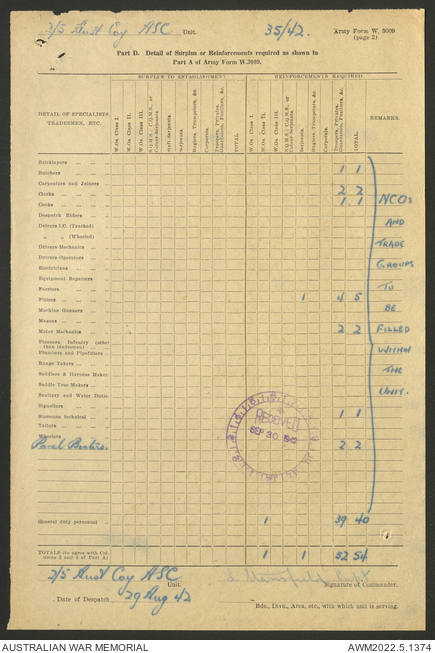 2/5 Aust Coy ASC Unit. 35/42. Army Form W. 3009
(page 2)
Part D. Detail of Surplus or Reinforcements required as shown in
Part A of Army Form W.3009.
SURPLUS TO ESTABLISHMENT REINFORCEMENTS REQUIRED
DETAIL OF SPECIALISTS, TRADESMEN, ETC.
W.Os. Class I.
W.Os. Class II.
W.Os. Class III.
S.Q.M.S., C.Q.M.S., or Colour-Sergeants.
Staff-Sergeants.
Sergeants.
Buglers, Trumpeters, &c.
Corporals.
Troopers, Privates, Guardsmen, Fusiliers, &c.
TOTAL
W.Os. Class I.
W.Os. Class II.
W.Os. Class III.
S.Q.M.S., C.Q.M.S., or Colour-Sergeants.
Sergeants.
Buglers, Trumpeters, &c.
Corporals.
Troopers, Privates, Guardsmen, Fusiliers, &c.
TOTAL.
REMARKS.
Bricklayers
Butchers 1 1
Carpenters and Joiners
Clerks 2 2
Cooks 1 1
Despatch Riders
Drivers I.C. (Tracked)
" " (Wheeled)
Drivers-Mechanics
Drivers-Operators
Electricians
Equipment Repairers
Farriers
Fitters 1 4 5
Machine Gunners
Masons
Motor Mechanics 2 2
Pioneers, Infantry (other
than tradesmen)
Plumbers and Pipefitters
Range Takers
Saddlers & Harness Maker
Saddle Tree Makers
Sanitary and Water Duties
Signallers
Storemen technical 1 1
Tailors
Wheelers
Panel Beaters. 2 2
NCOs
AND
TRADE
GROUPS
TO
BE
FILLED
WITHIN
THE
UNIT.
RECEIVED
SEP 30 1942
General duty personnel 1 39 40
TOTALS (to agree with Col-
umns 3 and 4 of Part A) 1 1 52 54
2/5 Aust Coy ASC Unit. Signature of Commander.
Date of Despatch 29 Aug 42
Bde., Divn., Area, etc., with which unit is serving.
AUSTRALIAN WAR MEMORIAL AWM2022.5.1374